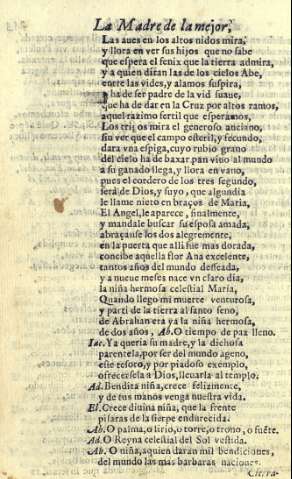 La Madre de la mejor,
Las aues en los altos nidos mira,
y llora en ver sus hijos que no sabe
que espera el fenix que la tierra admira,
y a quien diran las de los cielos Abe,
entre las vides, y alamos suspira,
ha de ser padre de la vid suaue,
que ha de dar en la Cruz por altos ramos,
aquel razimo fertil que esperamos,
Los trigos mira el generoso anciano,
sin ver que el campo esteril, y fecundo,
dara vna espiga, cuyo rubio grano
del cielo ha de baxar pan viuo al mundo
a su ganado llega, y llora en vano,
pues el cordero de los tres segundo,
sera de Dios, y suyo, que algun dia
le llame nieto en braços de Maria,
El Angel, le aparece, finalmente,
y mandale buscar su esposa amada,
abraçanse los dos alegremente,
en la puerta que alli fue mas dorada,
concibe aquella flor Ana excelente,
tantos años del mundo desseada,
y a nueue meses nace vn claro dia,
la niña hermosa celestial Maria,
Quando llego mi muerte venturosa,
y parti de la tierra al santo seno,
de Abrahan era ya la niña hermosa,
de dos años, Ab. O tiempo de paz lleno.
Iac. Ya queria su madre, y la dichosa
parentela, por ser del mundo ageno,
este tesoro, y por piadoso exemplo,
ofrecersela a Dios, lleuarla al templo.
Ad. Bendita niña, crece felizmente,
y de tus manos venga nuestra vida.
El. Crece diuina niña, que la frente
pisaras de la sierpe endurecida.
Ab. O palma, o lirio, o torre, o trono, o fuẽte.
Ad. O Reyna celestial del Sol vestida.
Ab. O niña, a quien daran mil bendiciones,
del mundo las mas barbaras naciones.
Cierra-